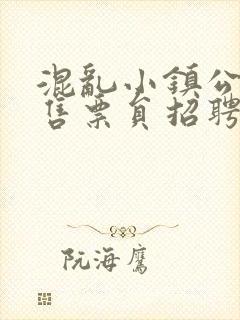 混亂小鎮公
售票員招聘
阮海鷹